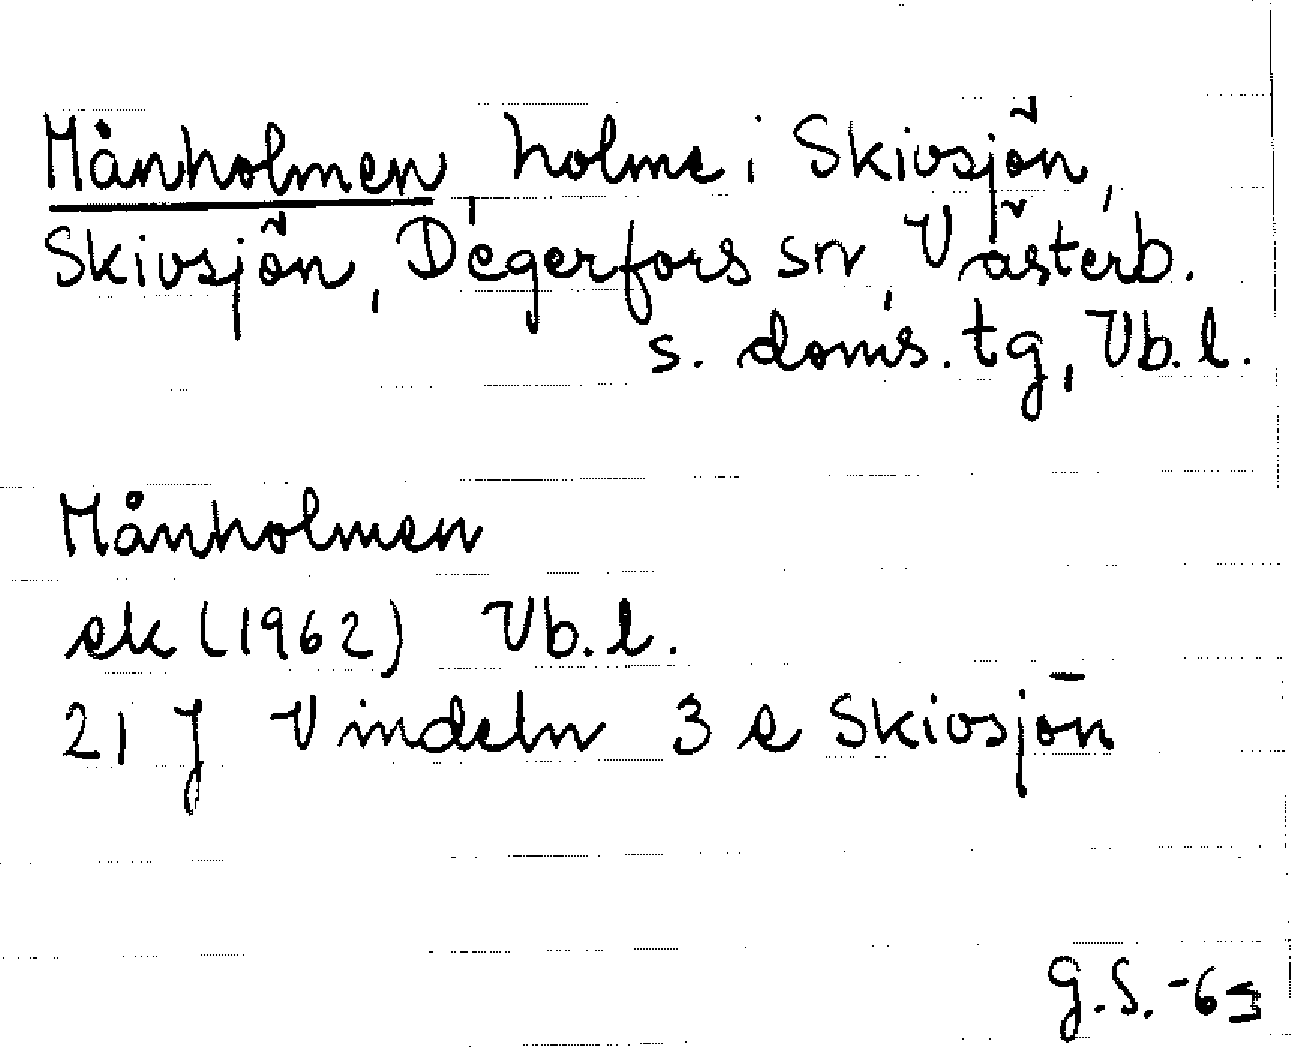 Månholmen, holme i Skivsjön,
Skivsjön, Degerfors sn, Västerb.
s. doms. tg, Vb. l.
Månholmen
ek (1962) Vb. l.
21 J Vindeln 3 e Skivsjön
G.S. -63